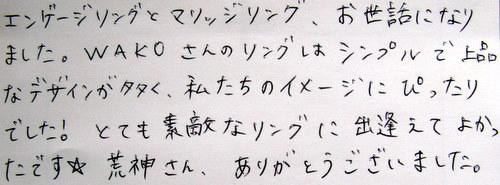 エンゲージリングとマリッジリング、お世話になり
ました。WAKOさんのリングはシンプルで上品
なデザインが多く、私たちのイメージにぴったり
でした！とても素敵なリングに出逢えてよかっ
たです☆荒神さん、ありがとうございました。